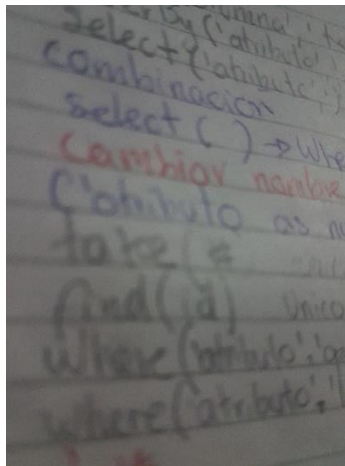 select('atributo',
combinacion
select( ) → Whe
Cambiar nombre
('atributo as n
take(
find(id) unico
where('atributo','op
where('atributo','